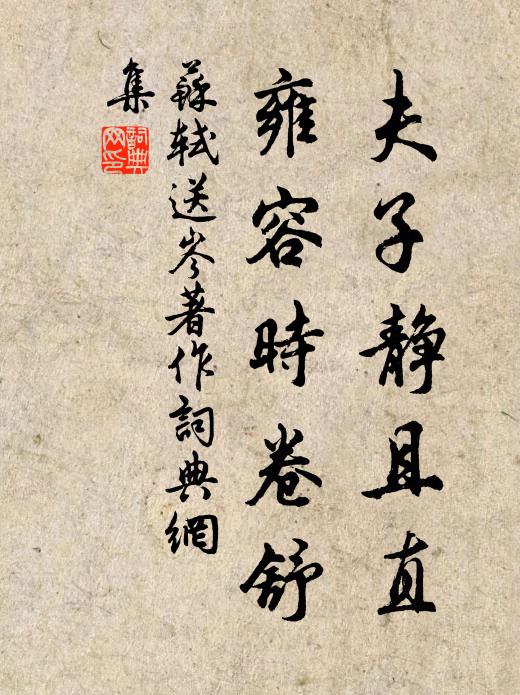 夫子静且直
雍容時卷舒
蘇軾送岑著作詞典網
集
詞典
网印